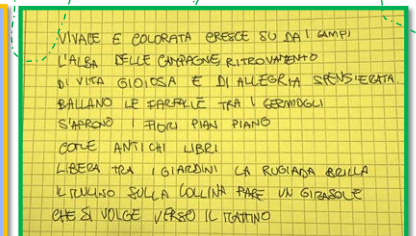 VIVACE E COLORATA CRESCE SU DAI CAMPI
L'ALBA DELLE CAMPAGNE, RITROVAMENTO
DI VITA GIOIOSA E DI ALLEGRIA SPENSIERATA.
BALLANO LE FARFALLE TRA I GERMOGLI
S'APRONO I FIORI PIAN PIANO
COME ANTICHI LIBRI
LIBERA TRA I GIARDINI LA RUGIADA BRILLA
IL MULINO SULLA COLLINA PARE UN GIRASOLE
CHE SI VOLGE VERSO IL MATTINO